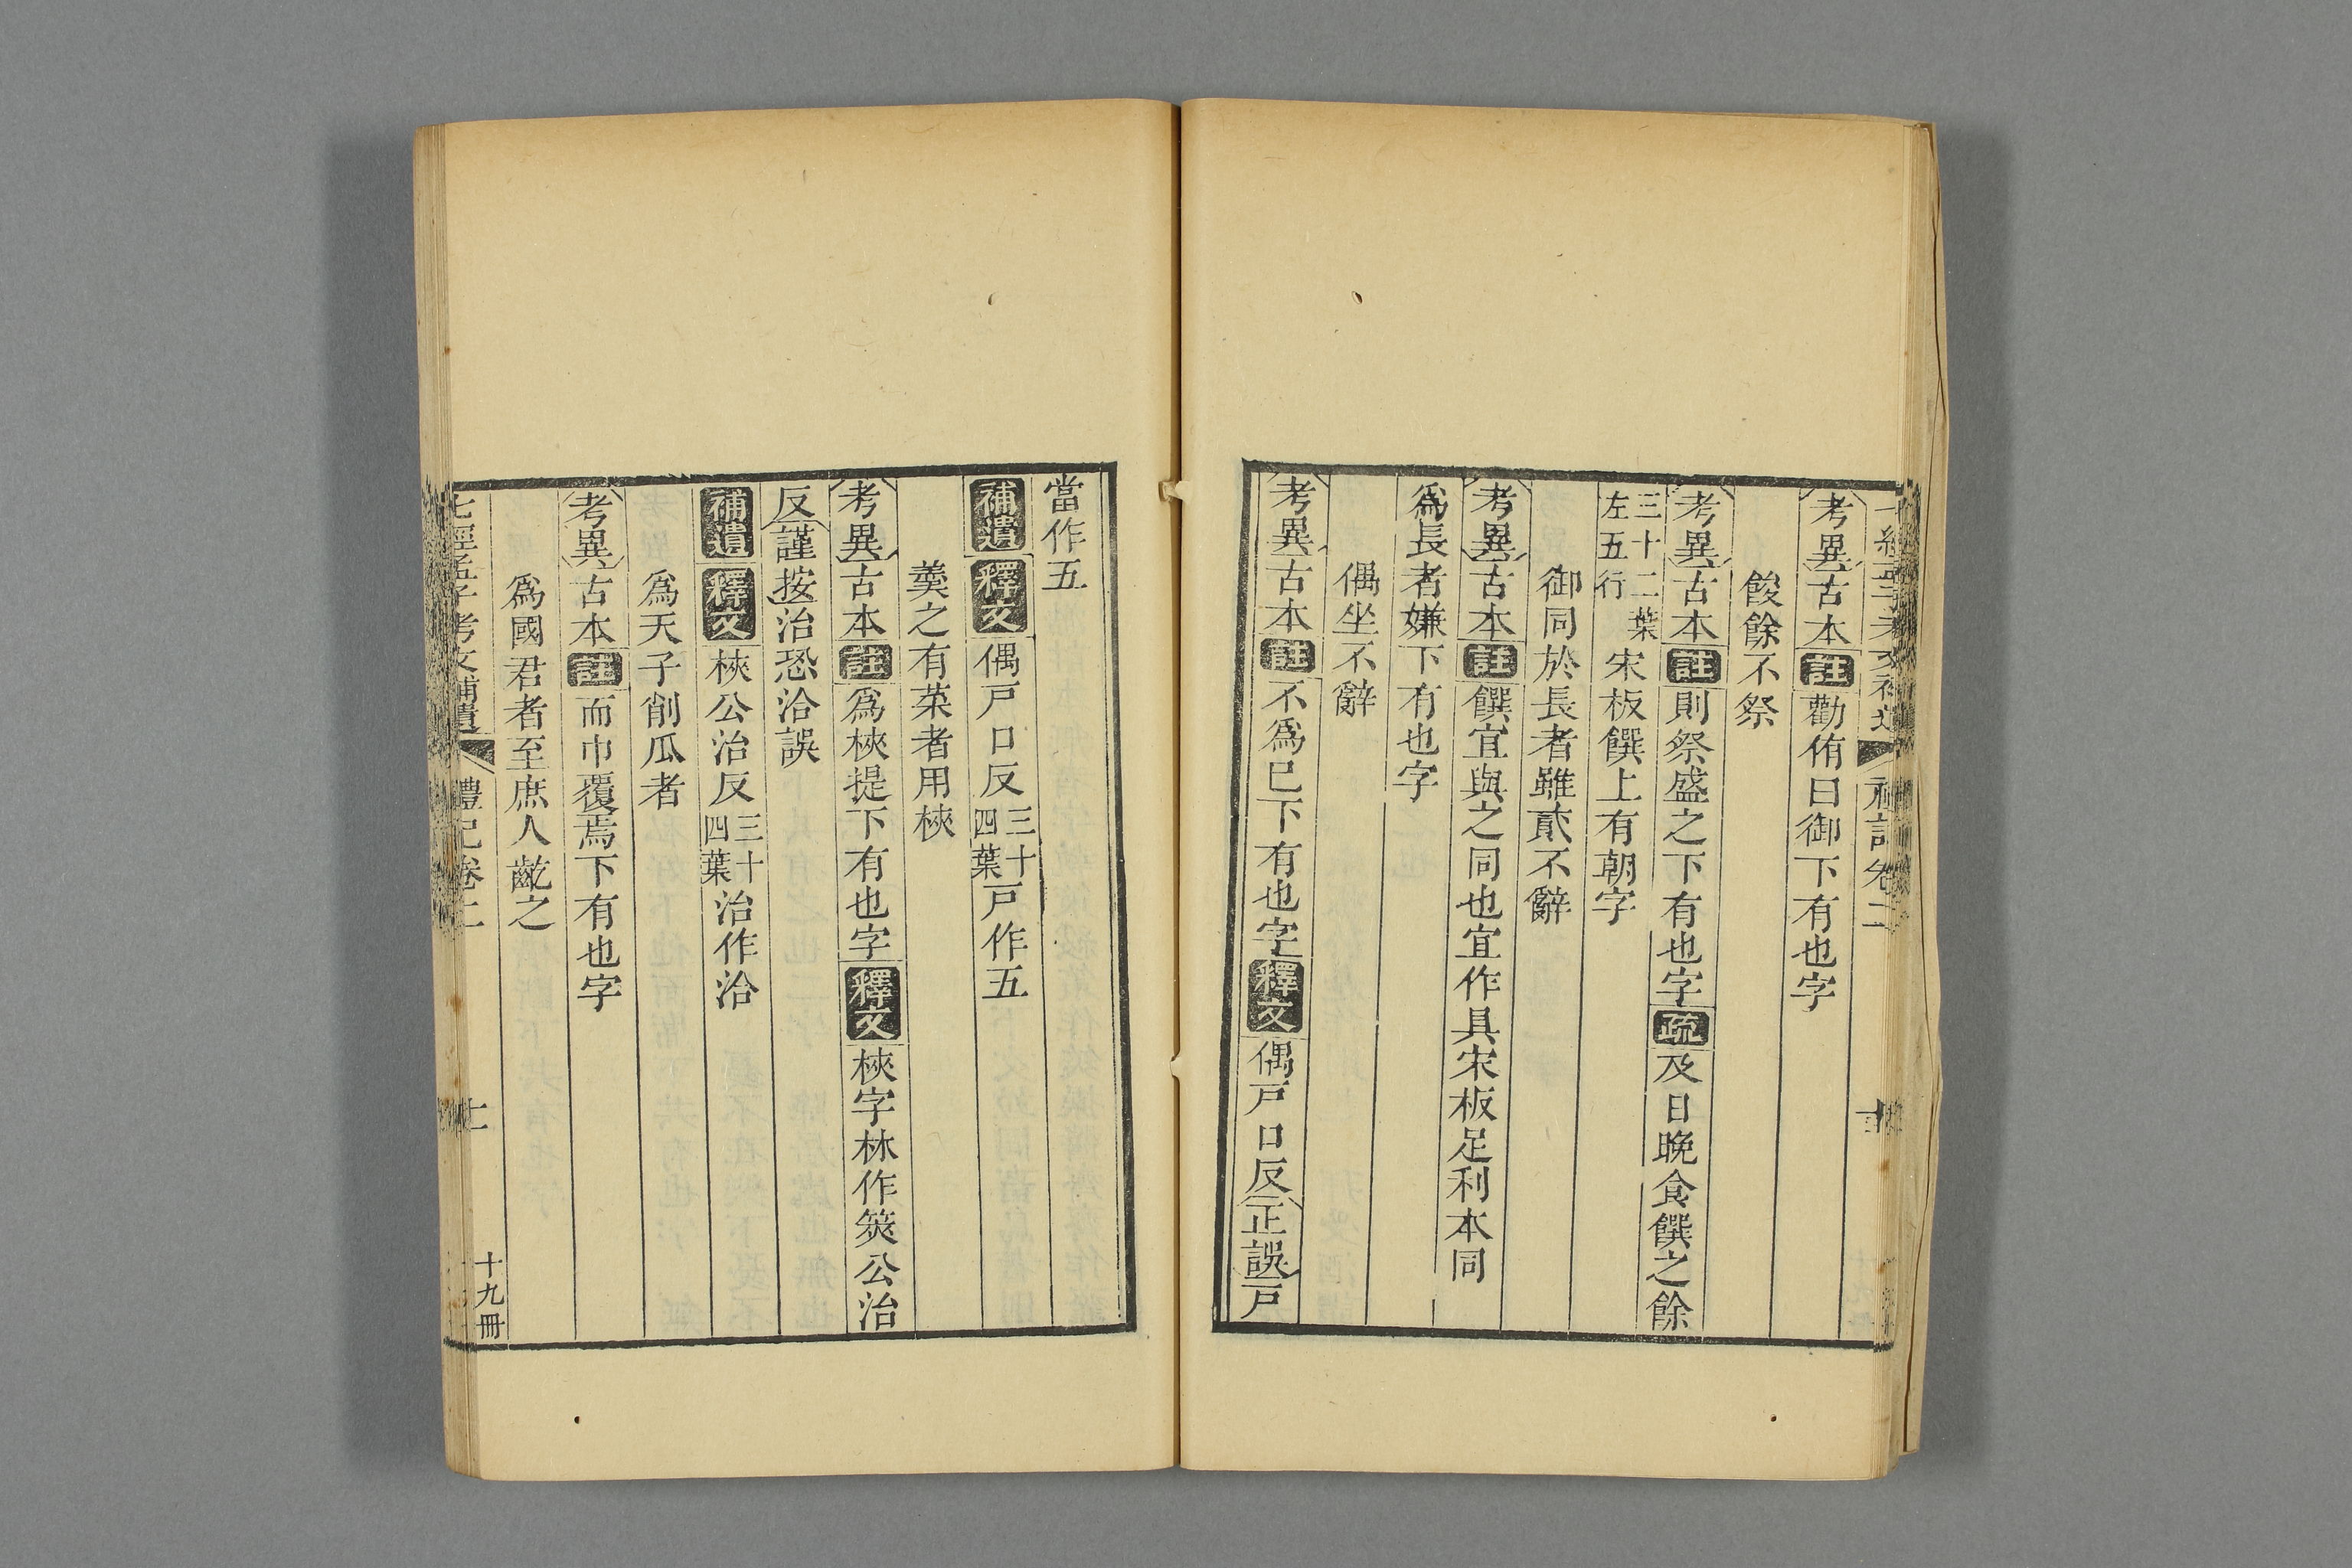 考異古本註勸侑曰御下有也字
餕餘不祭
考異古本註則祭盛之下有也字疏及日晚食饌之餘
三十二葉
左五行
宋板饌上有朝字
御同於長者雖貳不辭
考異古本註饌宜與之同也宜作具宋板足利本同
爲長者嫌下有也字
偶坐不辭
考異古本註不爲巳下有也字釋文偶戸口反正誤戸
當作五
補遺釋文偶戸口反三十四葉戸作五
羹之有菜者用梜
考異古本註爲梜提下有也字釋文梜字林作筴公治
反謹按治恐洽誤
補遺釋文梜公治反三十四葉治作洽
爲天子削瓜者
考異古本註而巾覆焉下有也字
爲國君者至庶人齕之
七經孟子考文補遺 禮記卷二
十九冊